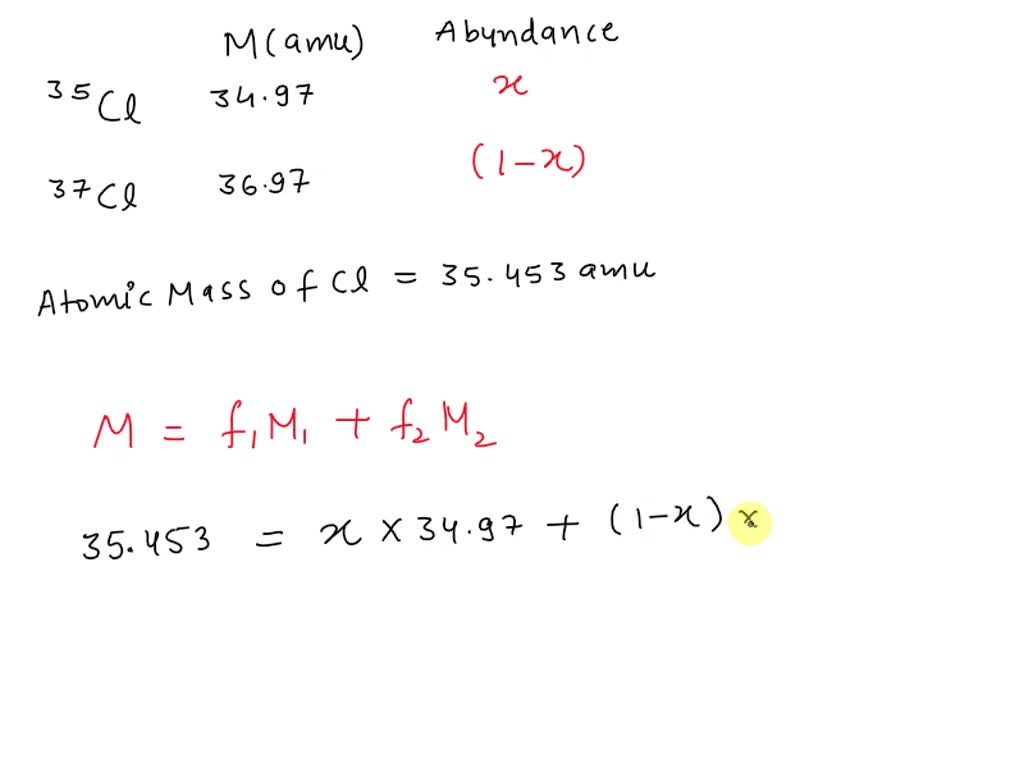 M(amu) Abundance
³⁵Cl 34.97 x
³⁷Cl 36.97 (1-x)
Atomic Mass of Cl = 35.453 amu
M = f₁M₁ + f₂M₂
35.453 = x × 34.97 + (1-x) ×